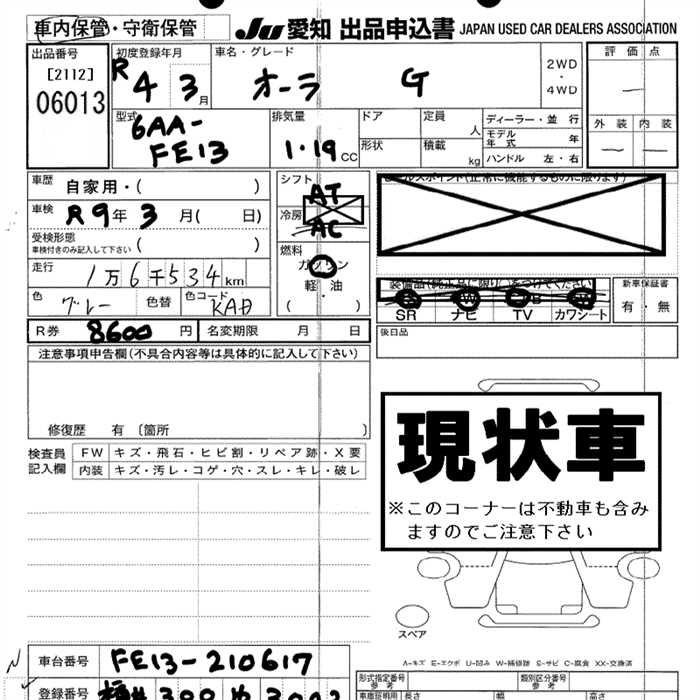 車内保管・守衛保管 JU 愛知 出品申込書 JAPAN USED CAR DEALERS ASSOCIATION
出品番号
[2112]
06013
初度登録年月
R4 3月
車名・グレード
オーラ G
2WD
・
4WD
評価点
外装 内装
型式
6AA-
FE13
排気量
1.19 cc
ドア
定員 人
形状
積載 kg
ディーラー・並行
モデル年式 年
ハンドル 左・右
車歴 自家用・( )
車検 R9年3月( 日)
受検形態
車検付きのみ記入して下さい ( )
走行 1万6千534km
色 グレー 色替 色コード KAD
シフト AT
冷房 AC
燃料
ガソリン
軽・油
( )
新車保証書
有・無
SR ナビ TV カワシート
後日品
R券 8600円 名変期限 月 日
注意事項申告欄(不具合内容等は具体的に記入して下さい)
修復歴 有 〔箇所 〕
検査員記入欄
FW キズ・飛石・ヒビ割・リペア跡・X要
内装 キズ・汚レ・コゲ・穴・スレ・キレ・破レ
現状車
※このコーナーは不動車も含み
ますのでご注意下さい
スペア
A-キズ E-エクボ U-凹み W-補修跡 S-サビ C-腐食 XX-交換済
車台番号 FE13-210617
登録番号
形式指定番号
参考
類別区分番号
参考
車庫証明用
長さ 幅 高さ